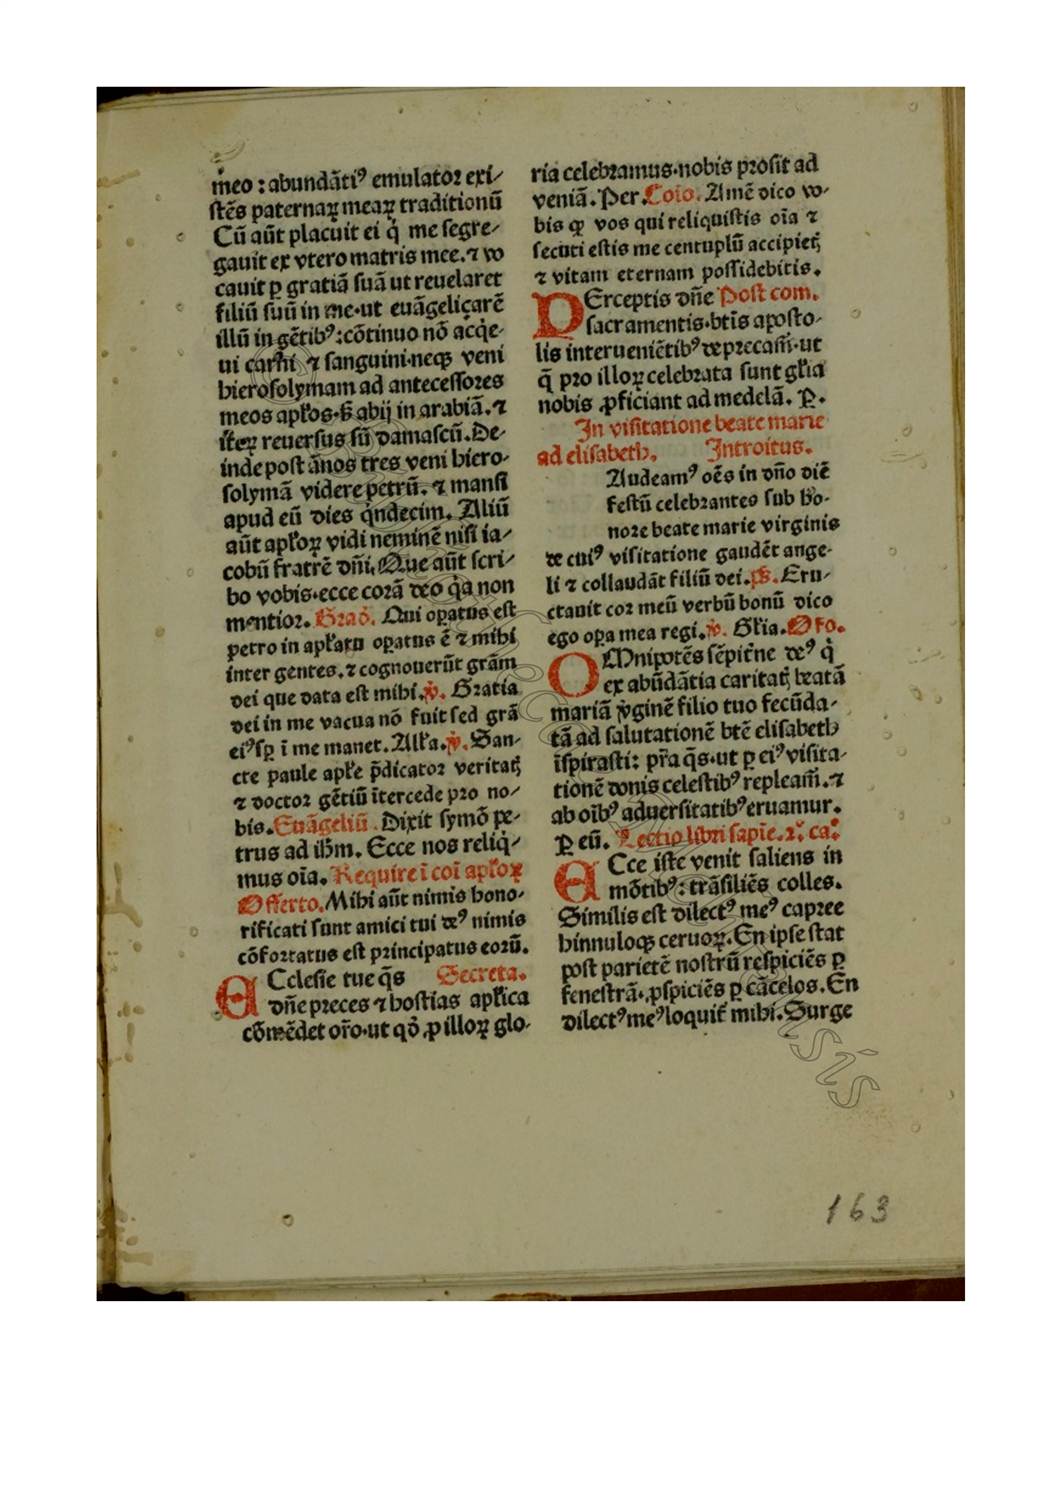 meo : abundãtiꝰ emulator exi⸗
stẽs paternaꝝ meaꝝ traditionũ
Cũ aũt placuit ei q̇ me segre⸗
gauit ex vtero matris mee. ⁊ vo
cauit ꝑ gratiã suã ut reuelaret
filiũ suũ in me·ut euãgelicarẽ
illũ in gẽtibꝰ:cõtinuo nõ acq̇e⸗
ui carni ⁊ sanguini·neqꝫ veni
hierosolymam ad antecessores
meos apłos·ꝫ abij in arabiã. ⁊
iteꝝ reuersus sũ damascũ. De⸗
inde post ãnos tres veni hiero⸗
solymã videre petrũ. ⁊ mansi
apud eũ dies q̇ndecim. Aliũ
aũt apłoꝝ vidi neminẽ nisi ia⸗
cobũ fratrẽ dñi. Que aũt scri⸗
bo vobis·ecce corã deo q̇a non
mentior. Grad̃. Qui opatus est
petro in apłatu opatus ẽ ⁊ mihi
inter gentes. ⁊ cognouerũt grãm
dei que data est mihi. ꝟ. Gratia
dei in me vacua nõ fuit sed grã
eiꝰ sꝑ ĩ me manet. Alła. ꝟ. San⸗
cte paule apłe p̃dicator veritatꝭ
⁊ doctor gẽtiũ ĩtercede pro no⸗
bis. Euãgeliũ. Dixit symõ pe⸗
trus ad ihm̃. Ecce nos reliq̇⸗
mus oĩa. Require ĩ coĩ apłoꝝ
Offerto. Mihi aũt nimis hono⸗
rificati sunt amici tui deꝰ nimis
cõfortatus est principatus eorũ.
ECclesie tue q̃s Secreta.
dñe preces ⁊ hostias apłica
cõmẽdet or̃o·ut qõ ꝓ illoꝝ glo⸗
ria celebramus·nobis prosit ad
veniã. Per. Coĩo. Amẽ dico vo⸗
bis ꝙ vos qui reliquistis oĩa ⁊
secuti estis me centuplũ accipietꝭ
⁊ vitam eternam possidebitis.
PErceptis dñe Post com.
sacramentis·btĩs aposto⸗
lis interueniẽtibꝰ deprecam̃·ut
q̃ pro illoꝝ celebrata sunt głia
nobis ꝓficiant ad medelã. P̱.
In visitatione beate marie
ad elisabeth. Introitus.
Audeamꝰ oẽs in dño diẽ
festũ celebrantes sub ho⸗
nore beate marie virginis
de cuiꝰ visitatione gaudẽt ange⸗
li ⁊ collaudãt filiũ dei. p̃s. Eru⸗
ctauit cor meũ verbũ bonũ dico
ego opa mea regi. ꝟ. Głia. Oro.
OMnipotẽs sẽpit̃ne deꝰ q̇
ex abũdãtia caritatꝭ beatã
mariã ꝟginẽ filio tuo fecũda⸗
tã ad salutationẽ btẽ elisabeth
ĩspirasti: pr̃a q̃s·ut ꝑ eiꝰ visita⸗
tionẽ donis celestibꝰ repleam̃. ⁊
ab oĩbꝰ aduersitatibꝰ eruamur.
P̱ eũ. Lectio libri sapiẽ. 2. ca.
ECce iste venit saliens in
mõtibꝰ: trãsiliẽs colles.
Similis est dilectꝰ meꝰ capree
hinnuloqꝫ ceruoꝝ. En ipse stat
post parietẽ nostrũ respiciẽs ꝑ
fenestrã. ꝓspiciẽs ꝑ cãcelos. En
dilectꝰ meꝰ loquit̃ mihi. Surge
163